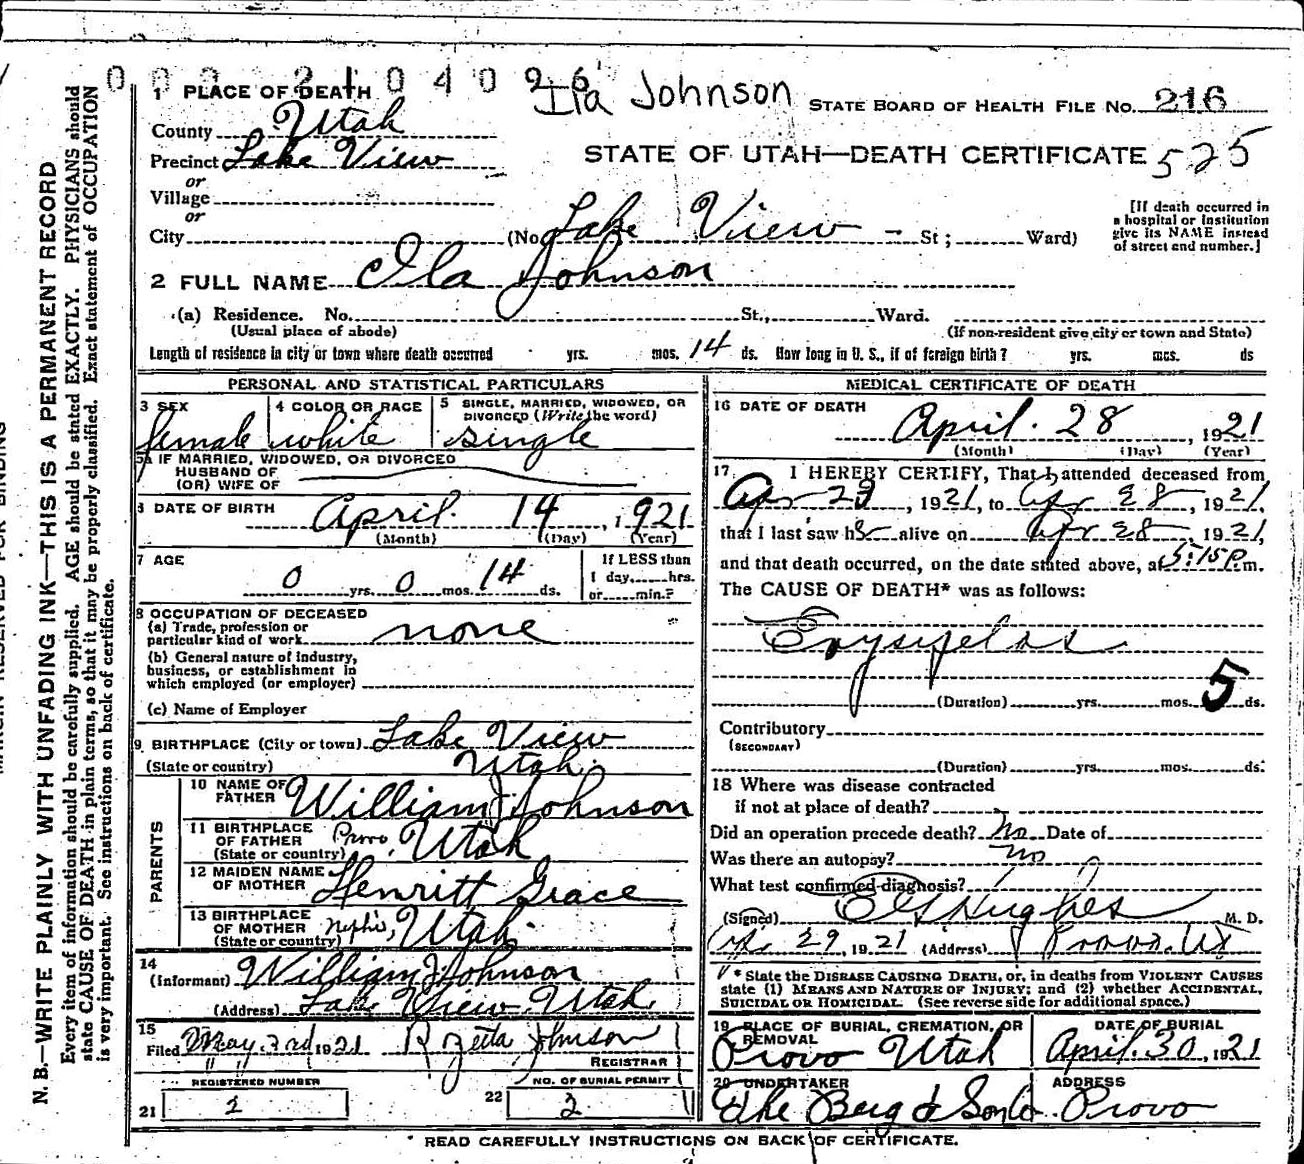 0 0 2 1 0 4 0 2 6
Ila Johnson
STATE BOARD OF HEALTH FILE NO. 216
1 PLACE OF DEATH
County Utah
STATE OF UTAH—DEATH CERTIFICATE 525
Precinct Lake View
or
Village
or
City (No. Lake View - St; Ward)
[If death occurred in
a hospital or institution
give its NAME instead
of street and number.]
2 FULL NAME Ila Johnson
(a) Residence. No. St., Ward.
(Usual place of abode) (If non-resident give city or town and State)
Length of residence in city or town where death occurred yrs. mos. 14 ds. How long in U. S., if of foreign birth? yrs. mos. ds
PERSONAL AND STATISTICAL PARTICULARS
3 SEX
female
4 COLOR OR RACE
white
5 SINGLE, MARRIED, WIDOWED, OR
DIVORCED (Write the word)
single
5a IF MARRIED, WIDOWED, OR DIVORCED
HUSBAND OF
(OR) WIFE OF
6 DATE OF BIRTH April 14, 1921
(Month) (Day) (Year)
7 AGE
0 yrs. 0 mos. 14 ds.
If LESS than
1 day, hrs.
or min.?
8 OCCUPATION OF DECEASED
(a) Trade, profession or
particular kind of work none
(b) General nature of industry,
business, or establishment in
which employed (or employer)
(c) Name of Employer
9 BIRTHPLACE (City or town) Lake View
(State or country) Utah.
PARENTS
10 NAME OF
FATHER William J Johnson
11 BIRTHPLACE
OF FATHER
(State or country) Provo, Utah
12 MAIDEN NAME
OF MOTHER Henritt Grace
13 BIRTHPLACE
OF MOTHER
(State or country) Nephi, Utah.
14
(Informant) William J Johnson
(Address) Lake View Utah
15
Filed May 3rd 1921 R Zetta Johnson
REGISTRAR
REGISTERED NUMBER
21 2
NO. OF BURIAL PERMIT
22 2
MEDICAL CERTIFICATE OF DEATH
16 DATE OF DEATH
April. 28, 1921
(Month) (Day) (Year)
17 I HEREBY CERTIFY, That I attended deceased from
Apr 23, 1921, to Apr 28, 1921,
that I last saw her alive on Apr 28, 1921,
and that death occurred, on the date stated above, at 5:15 P. m.
The CAUSE OF DEATH* was as follows:
Erysipelas
(Duration) yrs. mos. 5 ds.
Contributory
(SECONDARY)
(Duration) yrs. mos. ds.
18 Where was disease contracted
if not at place of death?
Did an operation precede death? No Date of
Was there an autopsy? No
What test confirmed diagnosis?
(Signed) Hughes M. D.
Apr 29, 1921 (Address) Provo, Ut
* State the DISEASE CAUSING DEATH, or, in deaths from VIOLENT CAUSES
state (1) MEANS AND NATURE OF INJURY; and (2) whether ACCIDENTAL,
SUICIDAL OR HOMICIDAL. (See reverse side for additional space.)
19 PLACE OF BURIAL, CREMATION, OR
REMOVAL
Provo Utah
DATE OF BURIAL
April. 30, 1921
20 UNDERTAKER
The Berg & Sons Co.
ADDRESS
Provo
READ CAREFULLY INSTRUCTIONS ON BACK OF CERTIFICATE.
MARGIN RESERVED FOR BINDING
N. B.—WRITE PLAINLY WITH UNFADING INK—THIS IS A PERMANENT RECORD
Every item of information should be carefully supplied. AGE should be stated EXACTLY. PHYSICIANS should
state CAUSE OF DEATH in plain terms, so that it may be properly classified. Exact statement of OCCUPATION
is very important. See instructions on back of certificate.